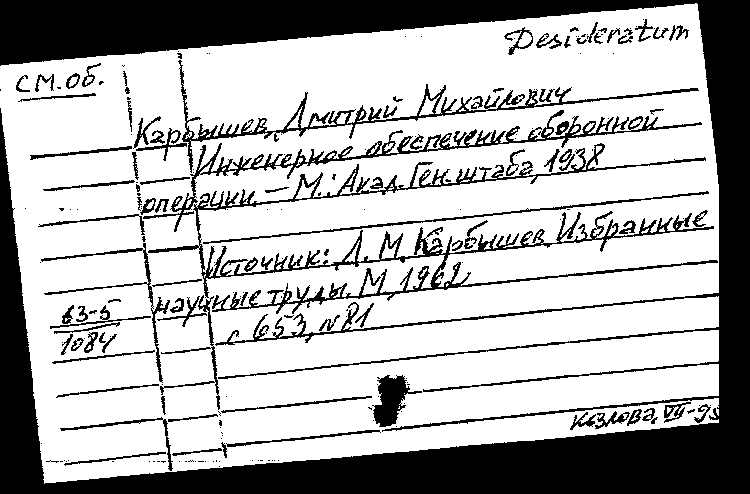 Desideratum
СМ.Об.
Карбышев, Дмитрий Михайлович
Инженерное обеспечение оборонной
операции. — М.: Акад. Ген. штаба, 1938
Источник: Д. М. Карбышев. Избранные
научные труды. М., 1962
с. 653, №81
63-5
1084
Козлова, VII-95